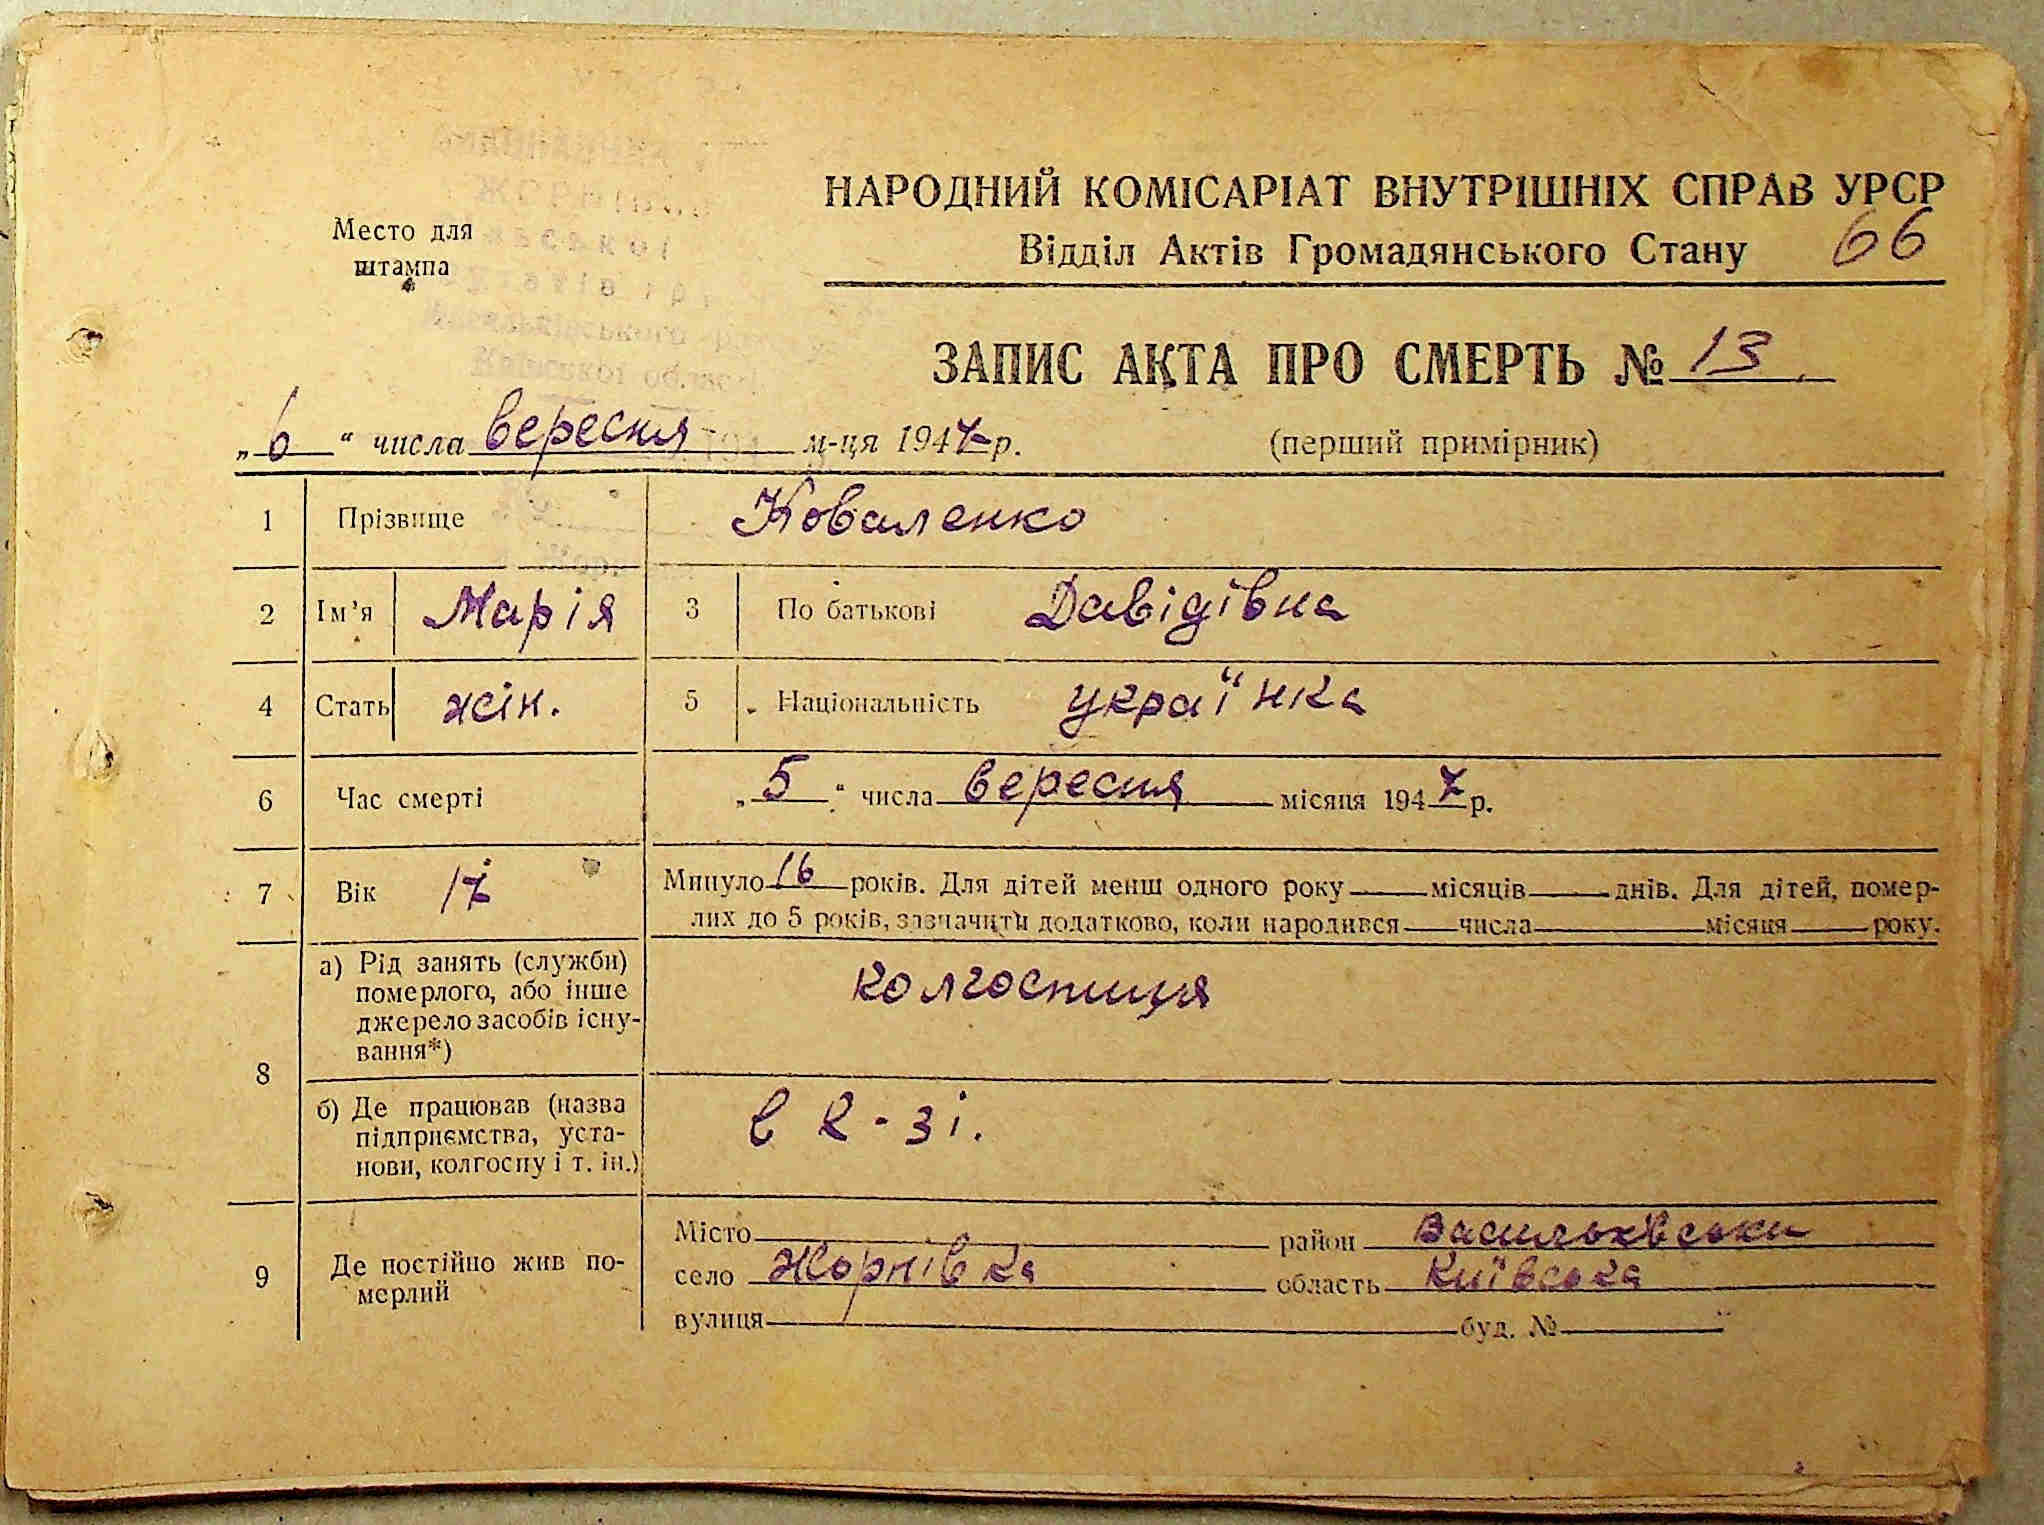 НАРОДНИЙ КОМІСАРІАТ ВНУТРІШНІХ СПРАВ УРСР
Відділ Актів Громадянського Стану 66
Место для
штампа
ЗАПИС АКТА ПРО СМЕРТЬ № 13
„6“ числа вересня м-ця 1947 р. (перший примірник)
1 Прізвище Коваленко
2 Ім’я Марія 3 По батькові Давідівна
4 Стать жін. 5 Національність українка
6 Час смерті „5“ числа вересня місяця 1947 р.
7 Вік 17 Минуло 16 років. Для дітей менш одного року місяців днів. Для дітей, помер-
лих до 5 років, зазначити додатково, коли народився числа місяця року.
8 а) Рід занять (служби)
померлого, або інше
джерело засобів існу-
вання*)
колгоспниця
б) Де працював (назва
підприємства, уста-
нови, колгоспу і т. ін.)
в к-зі.
9 Де постійно жив по-
мерлий
Місто район Васильківськи
село Жорнівка область Київська
вулиця буд. №
Київської